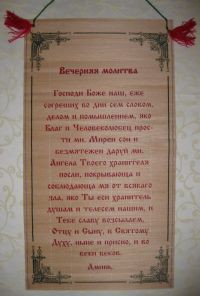 Вечерняя молитва
Господи Боже наш, еже
согреших во дни сем словом,
делом и помышлением, яко
Благ и Человеколюбец прос-
ти ми. Мирен сон и
безмятежен даруй ми.
Ангела Твоего хранителя
посли, покрывающа и
соблюдающа мя от всякаго
зла, яко Ты еси хранитель
душам и телесем нашим, и
Тебе славу возсылаем,
Отцу и Сыну, и Святому
Духу, ныне и присно, и во
веки веков.
Аминь.